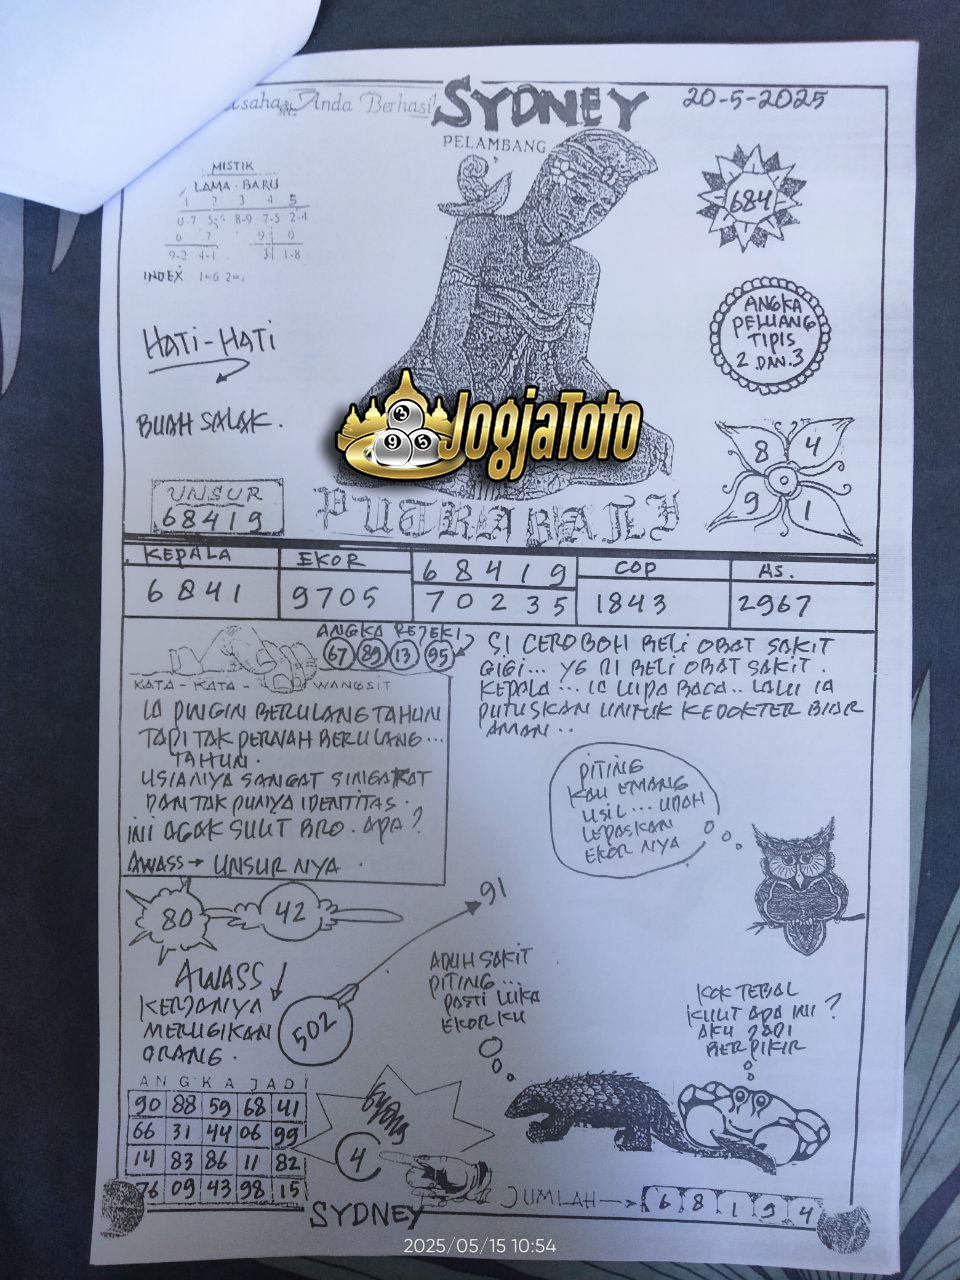 Anda Berhasil
SYDNEY
20-5-2025
PELAMBANG
MISTIK
LAMA - BARU
1 2 3 4 5
0-7 8-9 7-5 2-1
6 7 9 0
9-2 4-1 3 1-8
INDEX 1=6
684
HATI-HATI
ANGKA
PELUANG
TIPIS
2 DAN.3
BUAH SALAK.
JogjaToto
3
9 5
8 4
9 1
UNSUR
68419
PUTRA BALI
KEPALA EKOR 68419 COP AS.
6841 9705 70235 1843 2967
ANGKA REJEKI
67 89 13 95
KATA - KATA - WANGSIT
IA PINGIN BERULANG TAHUN
TAPI TAK PERNAH BERULANG...
TAHUN.
USIANYA SANGAT SINGAKAT
DAN TAK PUNYA IDENTITAS.
INI AGAK SULIT BRO. APA?
AWASS → UNSUR NYA.
SI CEROBOH BELI OBAT SAKIT
GIGI... YG DI BELI OBAT SAKIT.
KEPALA... IA LUPA BACA.. LALU IA
PUTUSKAN UNTUK KEDOKTER BIAR
AMAN..
PITING
KAU EMANG
USIL... UDAH
LEPASKAN
EKOR NYA
80
42
91
502
AWASS
KERJANYA
MERUGIKAN
ORANG.
ADUH SAKIT
PITING...
PASTI LUKA
EKORKU
KOK TEBAL
KULIT APA INI?
AKU JADI
BERPIKIR
ANGKA JADI
90 88 59 68 41
66 31 44 06 99
14 83 86 11 82
76 09 43 98 15
4
JUMLAH → 6 8 1 9 4
SYDNEY
2025/05/15 10:54